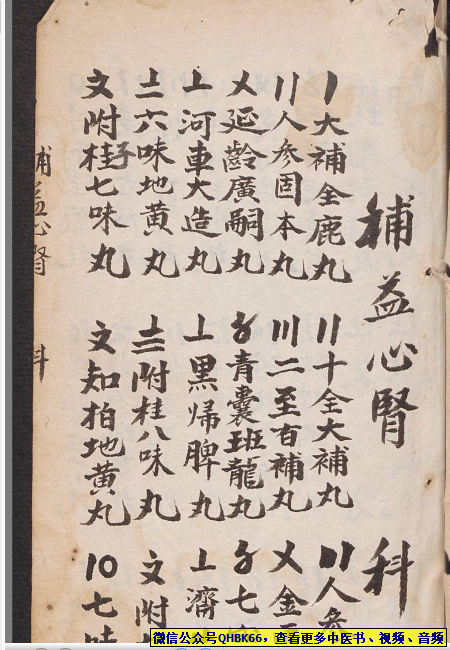 補益心腎科
〡大補全鹿丸 〢十全大補丸 〣人參
〢人參固本丸 〣二至百補丸 〤金
〤延齡廣嗣丸 〥青囊班龍丸 〥七
〦河車大造丸 〦黑歸脾丸 〦濟
〧六味地黃丸 〨附桂八味丸 〩附
〩附桂子七味丸 〩知柏地黃丸 10七味
補益心腎 科
微信公众号QHBK66，查看更多中医书、视频、音频